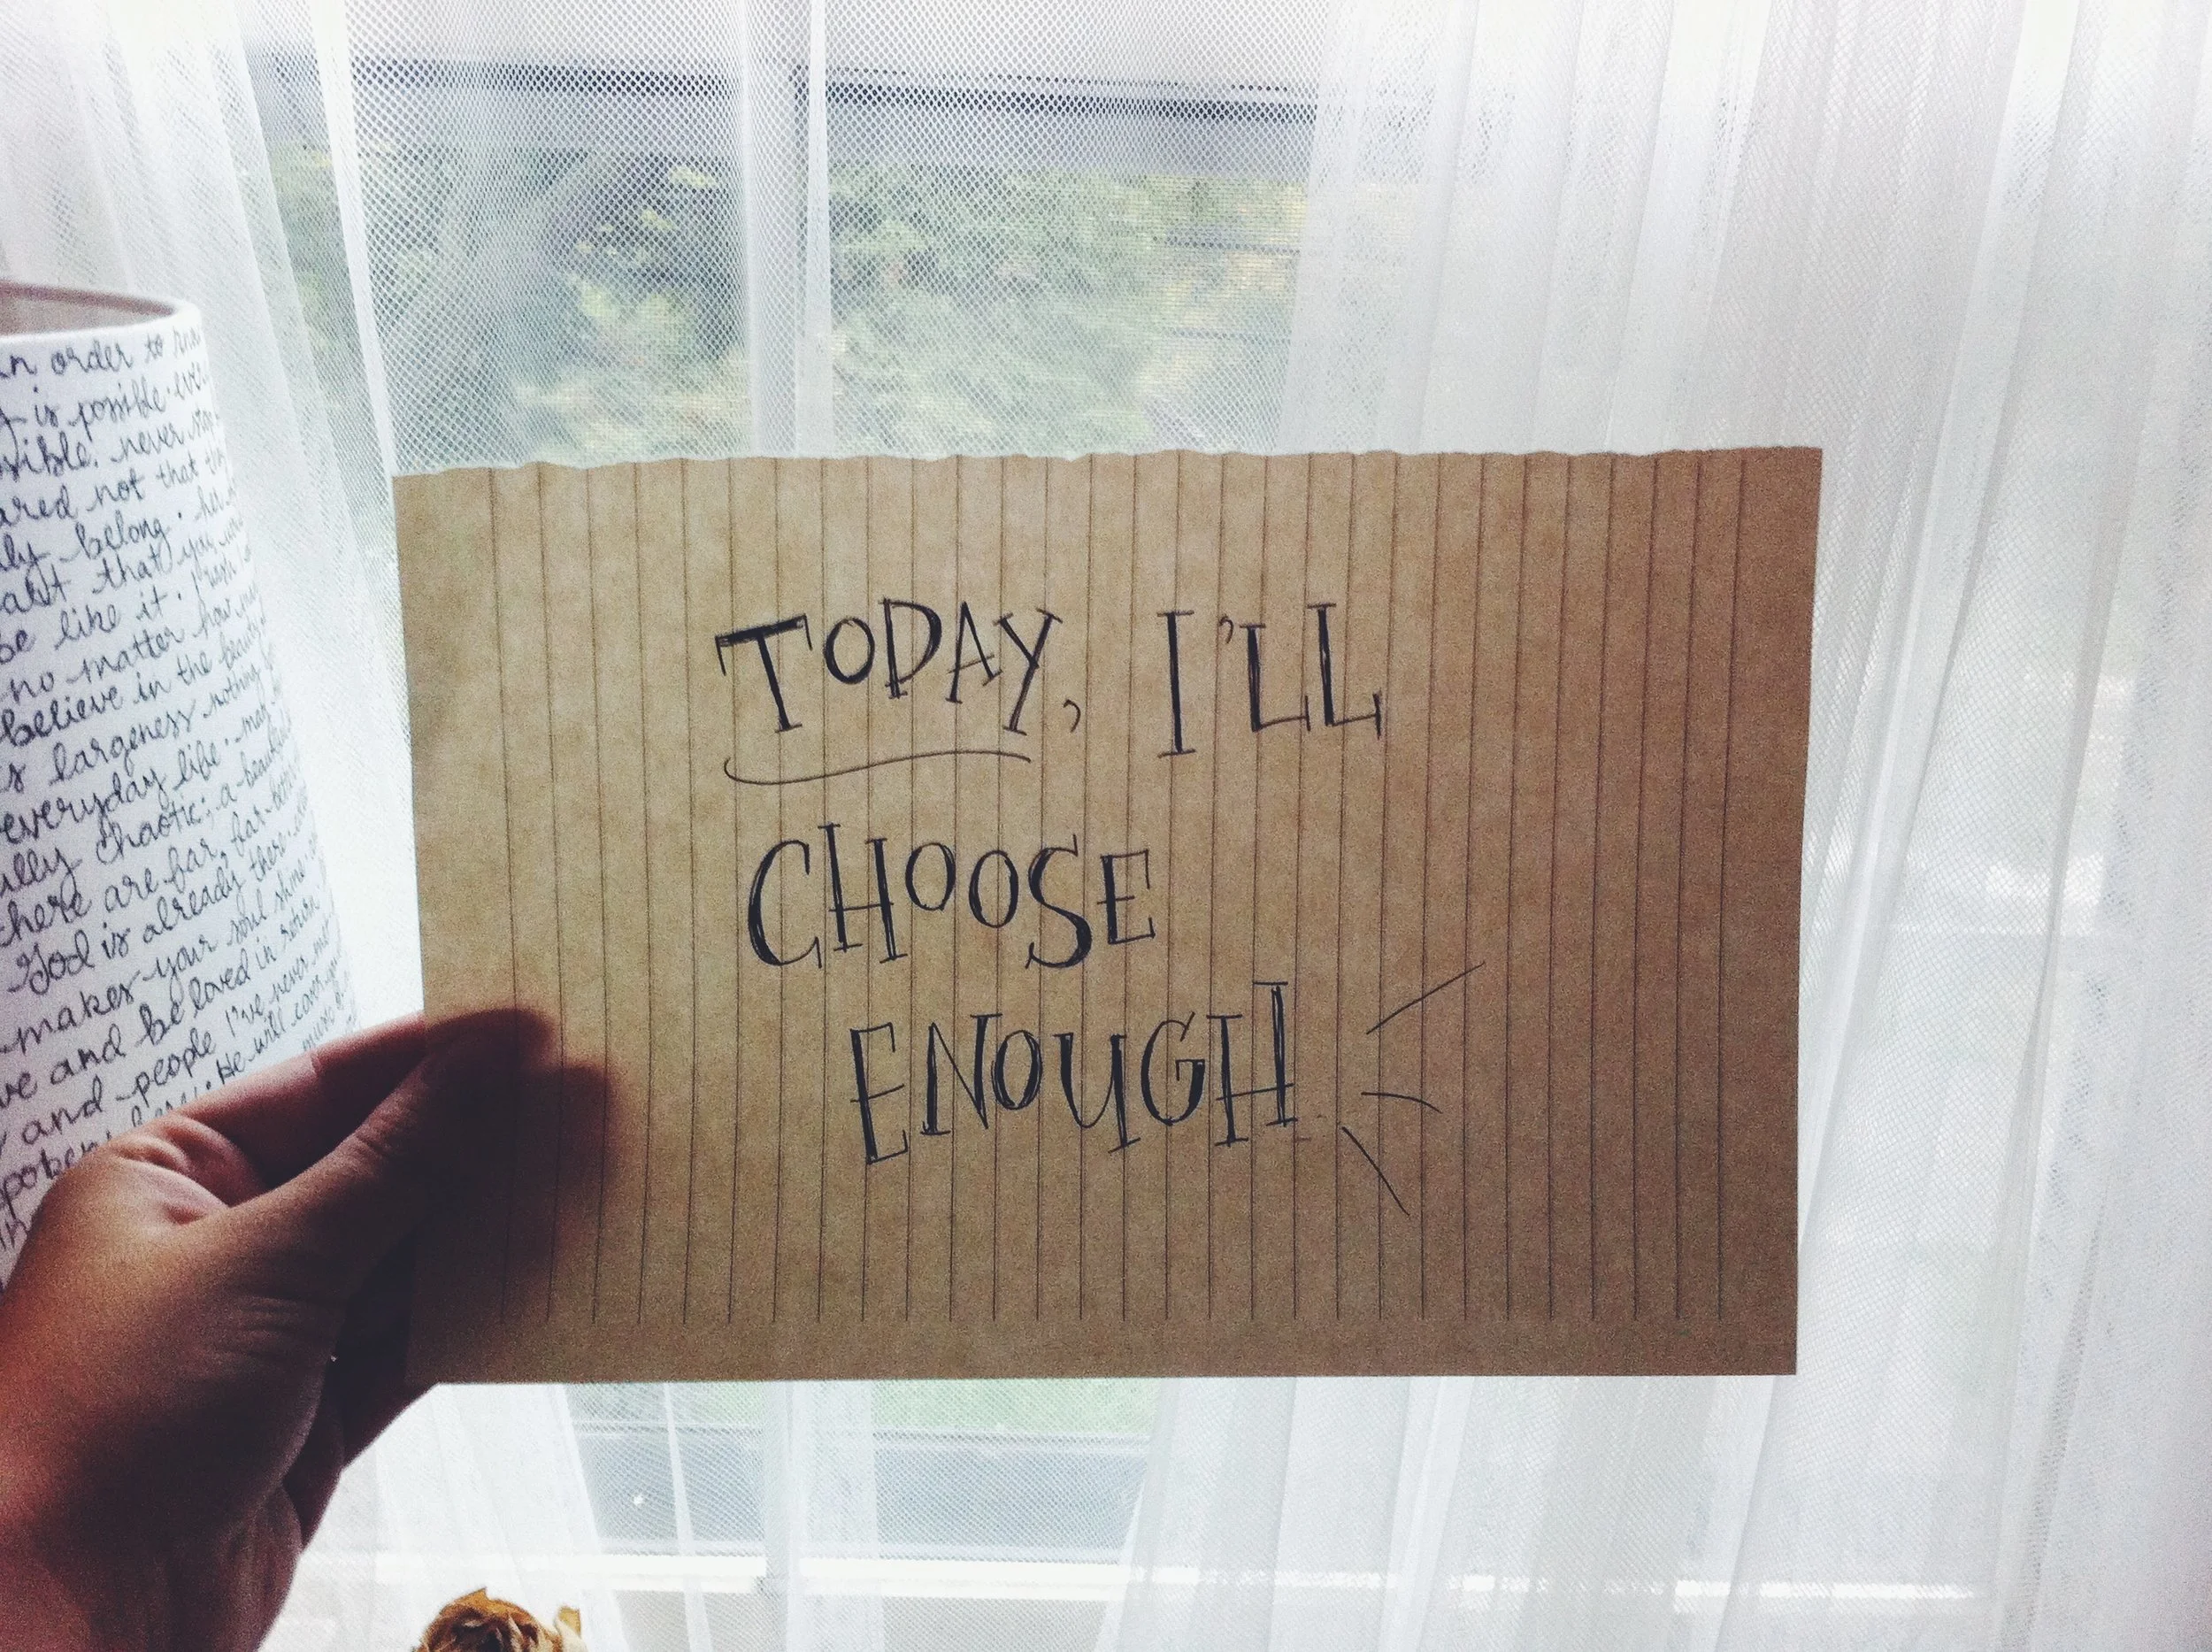 TODAY, I'LL
CHOOSE
ENOUGH
in order to
is possible
never stop
not that
belong
that you
be like it
no matter how
believe in the beauty
largeness nothing
everyday life
chaotic; a
there are far, far
God is already there
makes your soul shine
and be loved in return
and people I've never met
He will